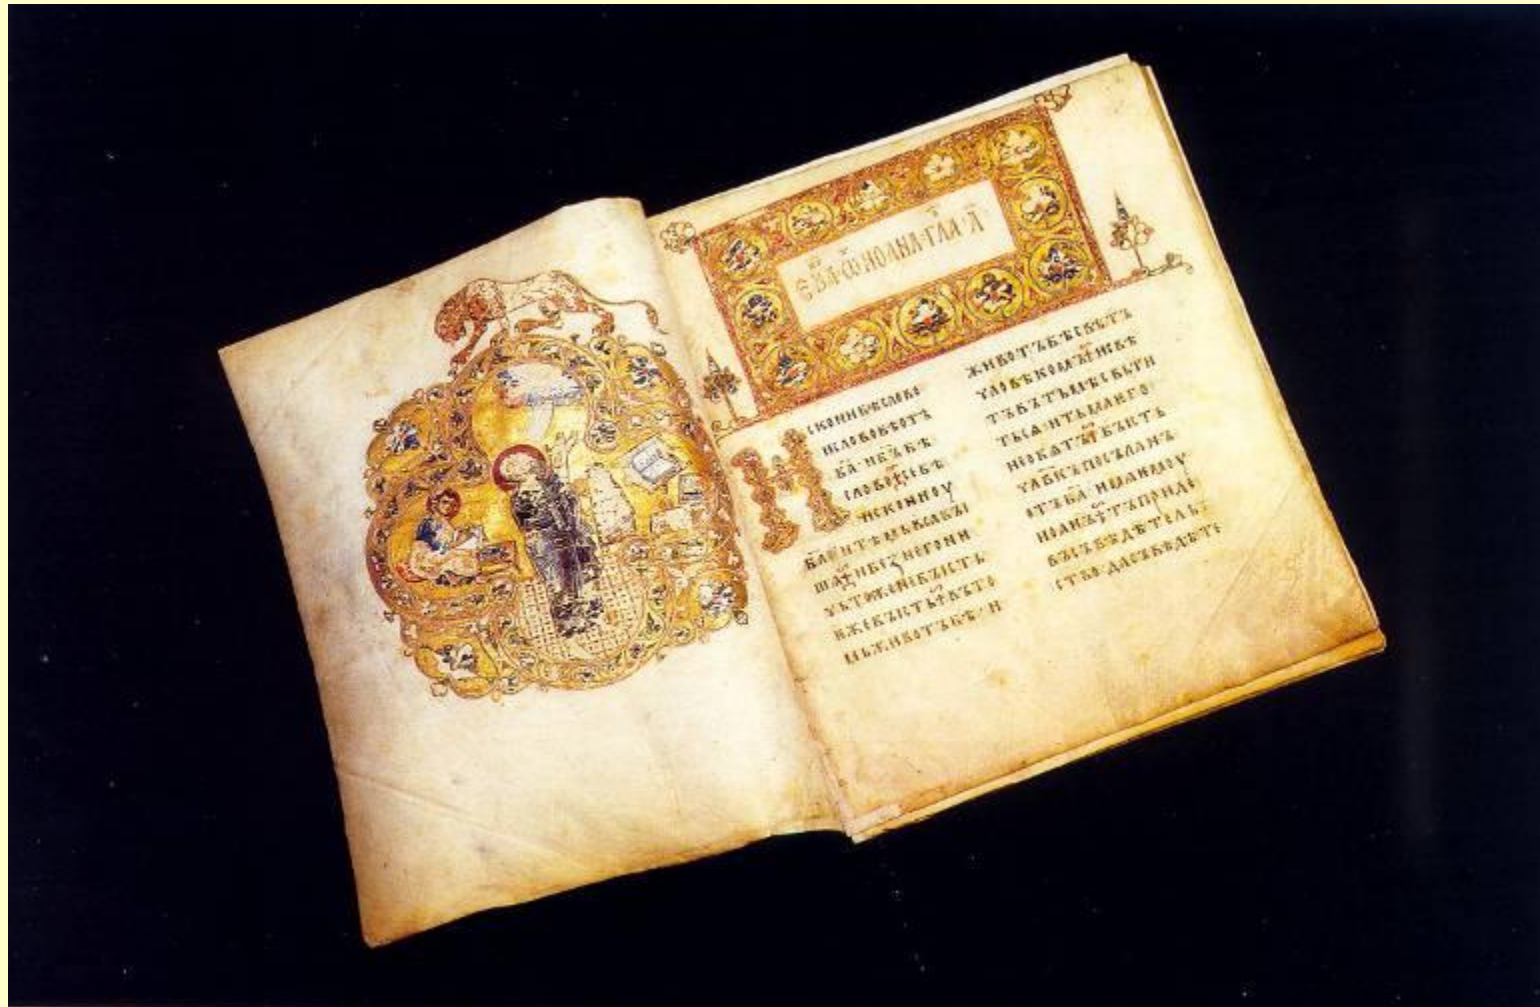 ЕВА·Ѿ ИОАНА·ГЛА·А҃
Искони бѣ слово
и слово бѣ отъ
б҃а· и б҃ъ бѣ
слово· се бѣ
искони оу
б҃а· и тѣмь вьса бꙑ
шѧ· и без него ни
чьтоже не бꙑсть
ѥже бꙑсть· въ то
мь животъ бѣ· и
животъ бѣ свѣтъ
чловѣкомъ· и свѣ
тъ въ тьмѣ свьти
тьсѧ· и тьма ѥго
не обѧтъ· бꙑстъ
чл҃вкъ посъланъ
отъ б҃а· имѧ ѥмоу
иоанъ· тъ приде
въ съвѣдѣтель
ство· да съвѣдѣте